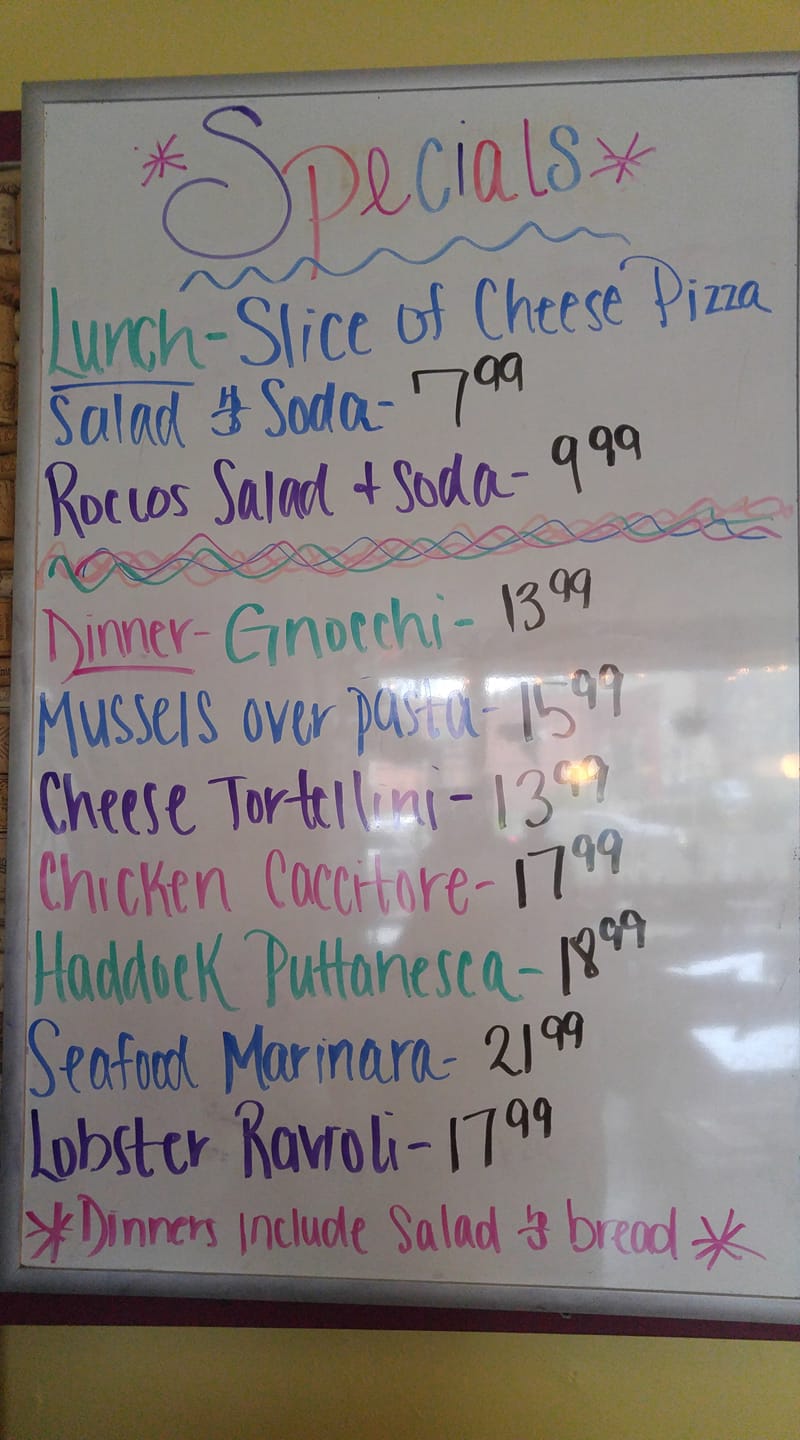 *Specials*
Lunch- Slice of Cheese Pizza
Salad & Soda- 7 99
Roccos Salad + Soda- 9 99
Dinner- Gnocchi- 13 99
Mussels over pasta- 15 99
Cheese Tortellini- 13 99
Chicken Caccitore- 17 99
Haddock Puttanesca- 18 99
Seafood Marinara- 21 99
Lobster Ravioli- 17 99
*Dinners Include Salad & bread*